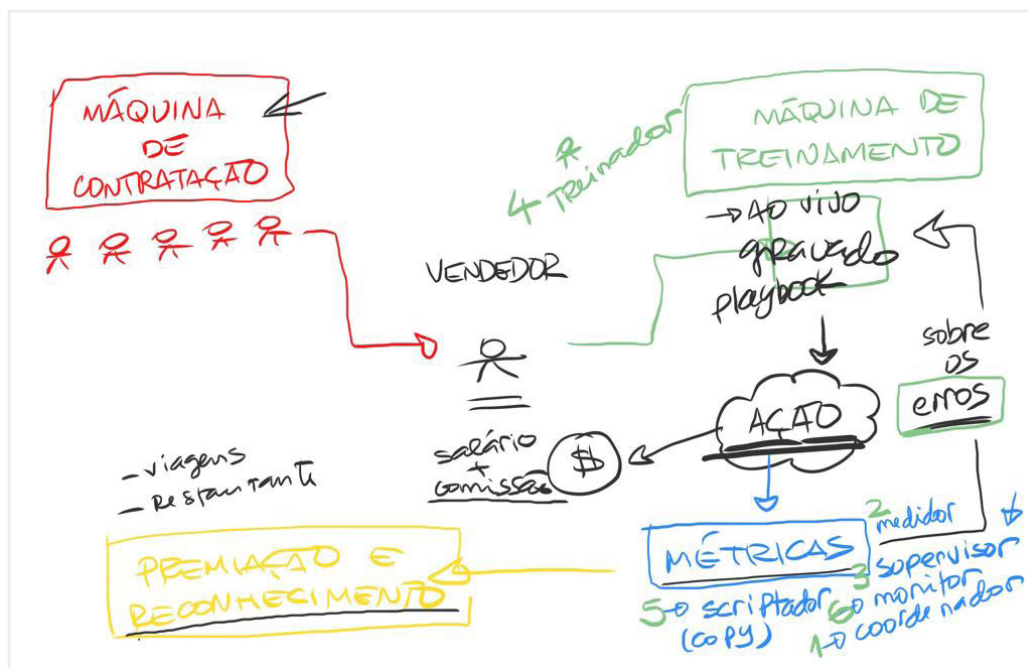 MÁQUINA
DE
CONTRATAÇÃO
4 TREINADOR
MÁQUINA DE
TREINAMENTO
→ AO VIVO
gravado
playbook
VENDEDOR
sobre
os
erros
AÇÃO
salário
+
comissão
$
- viagens
- Restaurante
PREMIAÇÃO E
RECONHECIMENTO
MÉTRICAS
2 medidor
3 supervisor
6→ monitor
1→ coordenador
5→ scriptador
(copy)